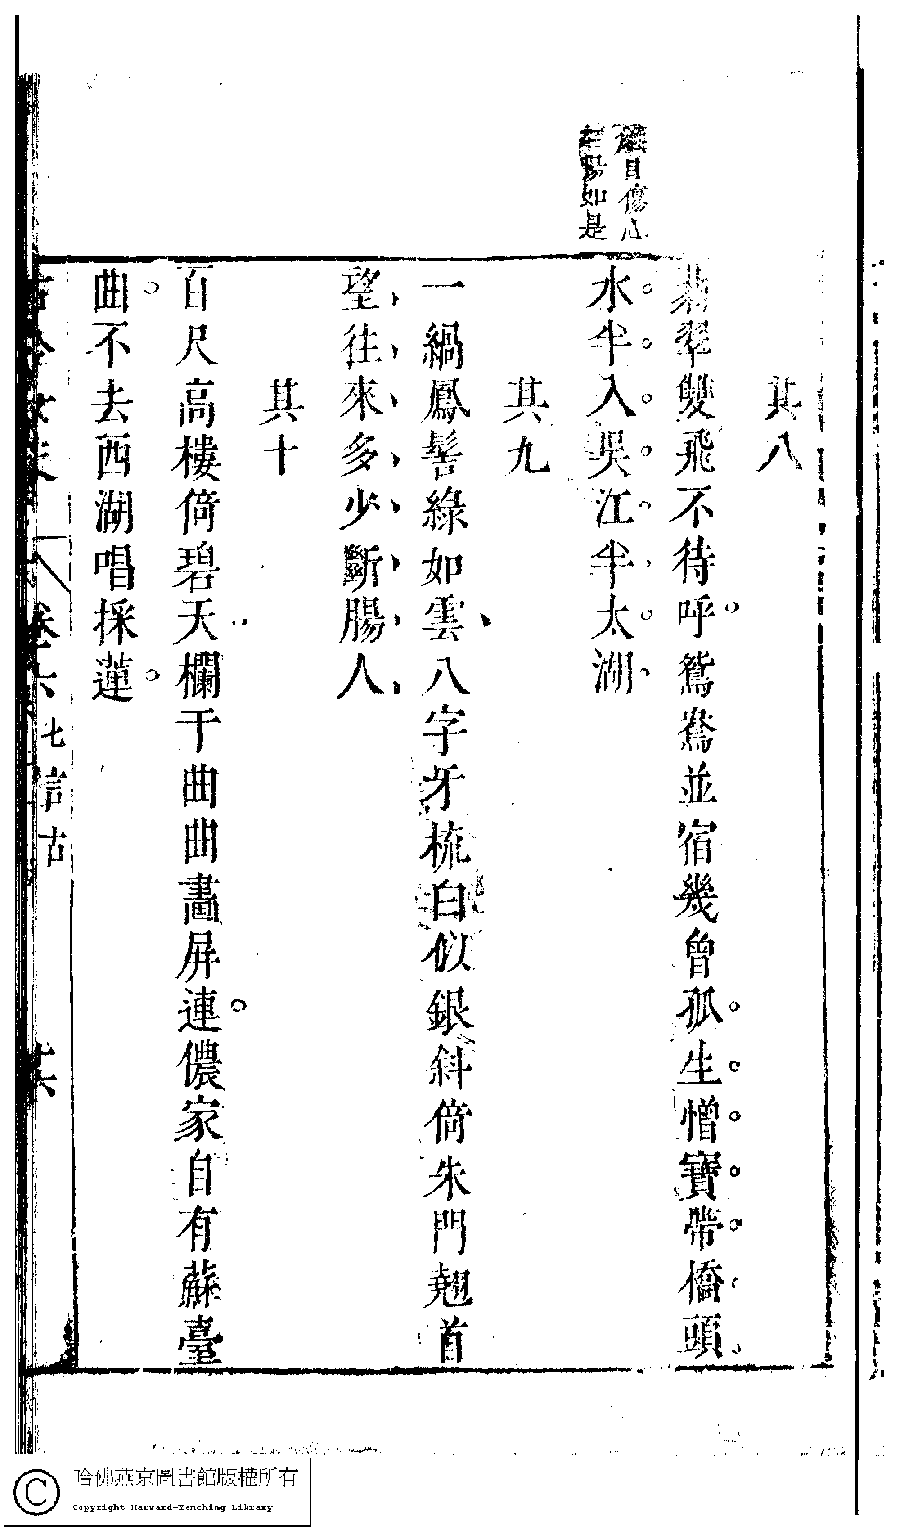 目傷心
如是
其八
翡翠雙飛不待呼鴛鴦並宿幾曾孤生憎寶帶橋頭
水半入吳江半太湖
其九
一緺鳳髻綠如雲八字牙梳白似銀斜倚朱門翹首
望往來多少斷腸人
其十
百尺高樓倚碧天欄干曲曲畫屏連儂家自有蘇臺
曲不去西湖唱採蓮
古今女史 卷六 七言古
哈佛燕京圖書館版權所有
Copyright Harvard-Yenching Library